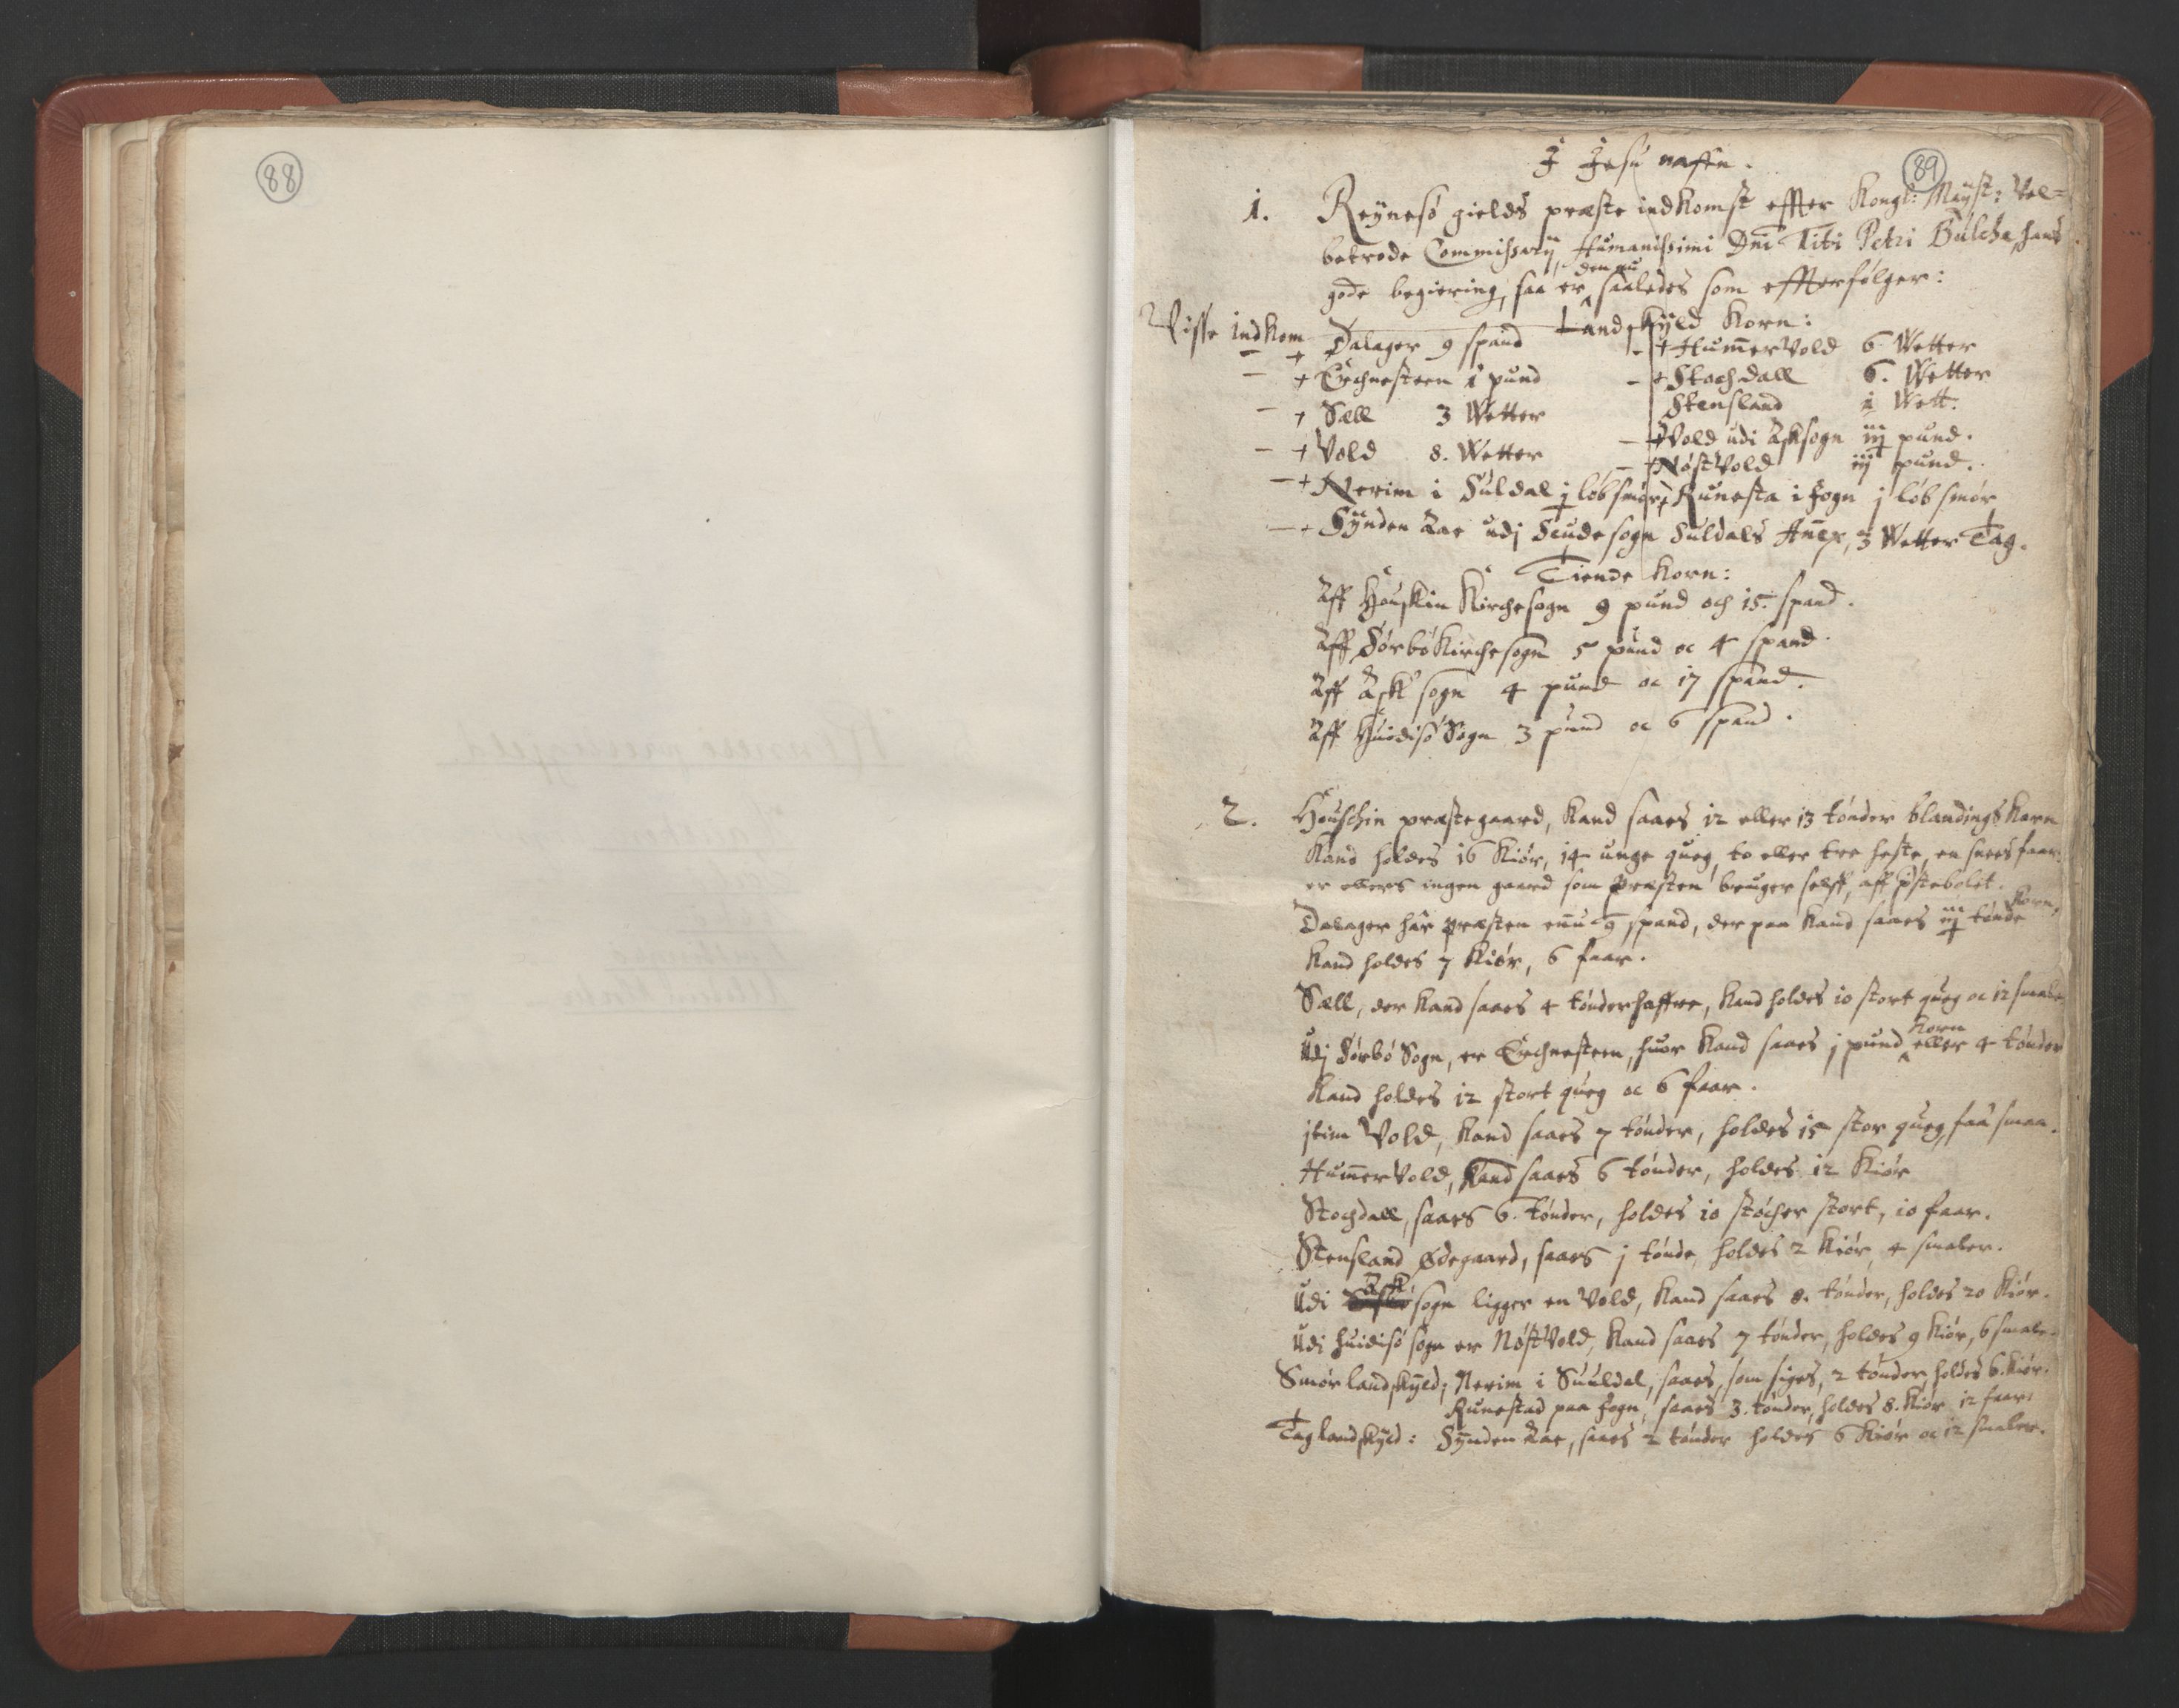 88
89
I Jesu naffn.
1. Reÿnesø gields præste indkomst effter Kongl: Maÿst: Vel=
betrode Commissarÿ, Humanissimi Dni Titi Petri Bulche, hans
gode begiering, saa er den nu saaledes som effterfølger:
Visse indkom Landskyld Korn:
- + Dalager 9 spand - + Hum̄ervold 6 Wetter
- + Erchnesteen 1 pund - + Stochdall 6. Wetter
- + Sæll 3 Wetter Stensland 1 Wett.
- + Vold 8. Wetter - + Vold udi Asksogn iij pund.
- + Nøstvold iij pund.
- + Nerim i Suldal j løb smør, + Runesta i Jogn j løb smør
- + Synden Aae udj Saude sogn Suldals Anex, 3 Wetter Tag.
Tiende Korn:
Aff Houskin Kirchesogn 9 pund och 15. spand.
Aff Sørbø Kirchesogn 5 pund oc 4 spand.
Aff Ask sogn 4 pund oc 17 spand.
Aff Huidisø Sogn 3 pund oc 6 spand.
2. Houschin præstegaard, kand saaes 12 eller 13 tønder blandings Korn
kand holdes 16 Kiør, 14 unge queg, to eller tre heste, en snees faar.
er ellers ingen gaard som præsten bruger selff, aff p̄stebolet.
Dalager har præsten enu 9 spand, der paa kand saaes iij tønde Korn,
kand holdes 7 Kiør, 6 faar.
Sæll, der kand saaes 4 tønder haffre, kand holdes 10 stort queg oc 12 smaler
Udj Sørbø Sogn, er Erchnesteen, huor kand saaes j pund korn eller 4 tønder
kand holdes 12 stort queg oc 6 faar.
jtem Vold, kand saaes 7 tønder, holdes 15 stor queg, faa smaa.
Hum̄ervold, kand saaes 6 tønder, holdes 12 Kiør
Stochdall, saaes 6. tønder, holdes 10 støcher stort, 10 faar.
Stensland Ødegaard, saaes j tønde, holdes 2 Kiør, 4 smaler.
Udi Ask sogn ligger en Vold, kand saaes 8. tønder, holdes 20 Kiør.
Udi huidisø sogn er Nøstvold, kand saaes 7 tønder, holdes 9 Kiør, 6 smale.
Smør landskyld; Nerim i Suuldal, saaes, som siges, 2 tønder, holdes 6. Kiør.
Runestad paa Jogn, saaes 3. tønder, holdes 8. Kiør 12 faar
Tag landskyld: Synden Aae, saaes 2 tønder holdes 6 Kiør oc 12 smaler.